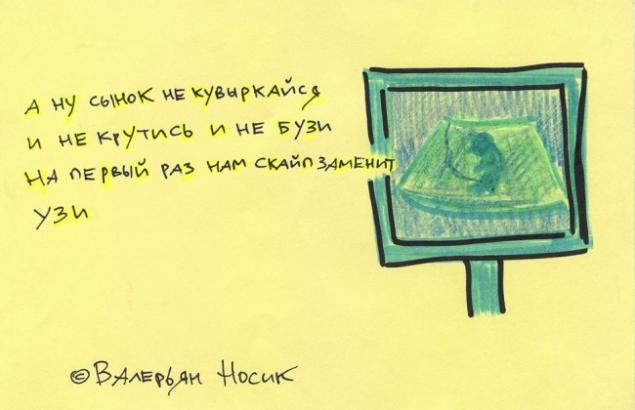 А НУ СЫНОК НЕ КУВЫРКАЙСЯ
И НЕ КРУТИСЬ И НЕ БУЗИ
НА ПЕРВЫЙ РАЗ НАМ СКАЙП ЗАМЕНИТ
УЗИ
© ВАЛЕРЬЯН НОСИК